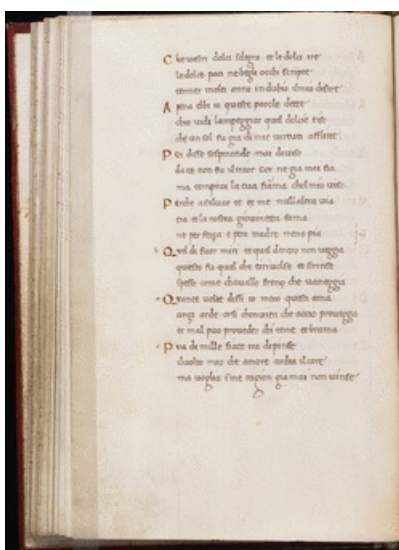 Che vostri dolci sdegni et le dolci ire
le dolce paci ne begli occhi scripte
tenner molti anni in dubio il mio desire
A pena ebbi io queste parole dette
chio vidi lampeggiar quel dolce riso
che un sol fu gia di mie virtuti afflicte
Poi disse sospirando mai diviso
da te non fu il mio cor ne gia mai fia
ma temprai la tua fiama chol mio viso
Perche a salvar te et me nullaltra via
era et la nostra giovinetta fama
ne per ferça e pero madre meno pia
Quel di fuor miri et quel dentro non veggia
questo fu quel che ti rivolse et strinse
spesso come chavallo freno che vaneggia
Quante volte dissi io meco questi ama
ançi arde orsi chonvien che accio proveggia
et mal puo proveder chi teme et brama
Piu di mille fiate ira dipinse
il volto mio che amore ardea il core
ma voglia i me ragion gia mai non vinse